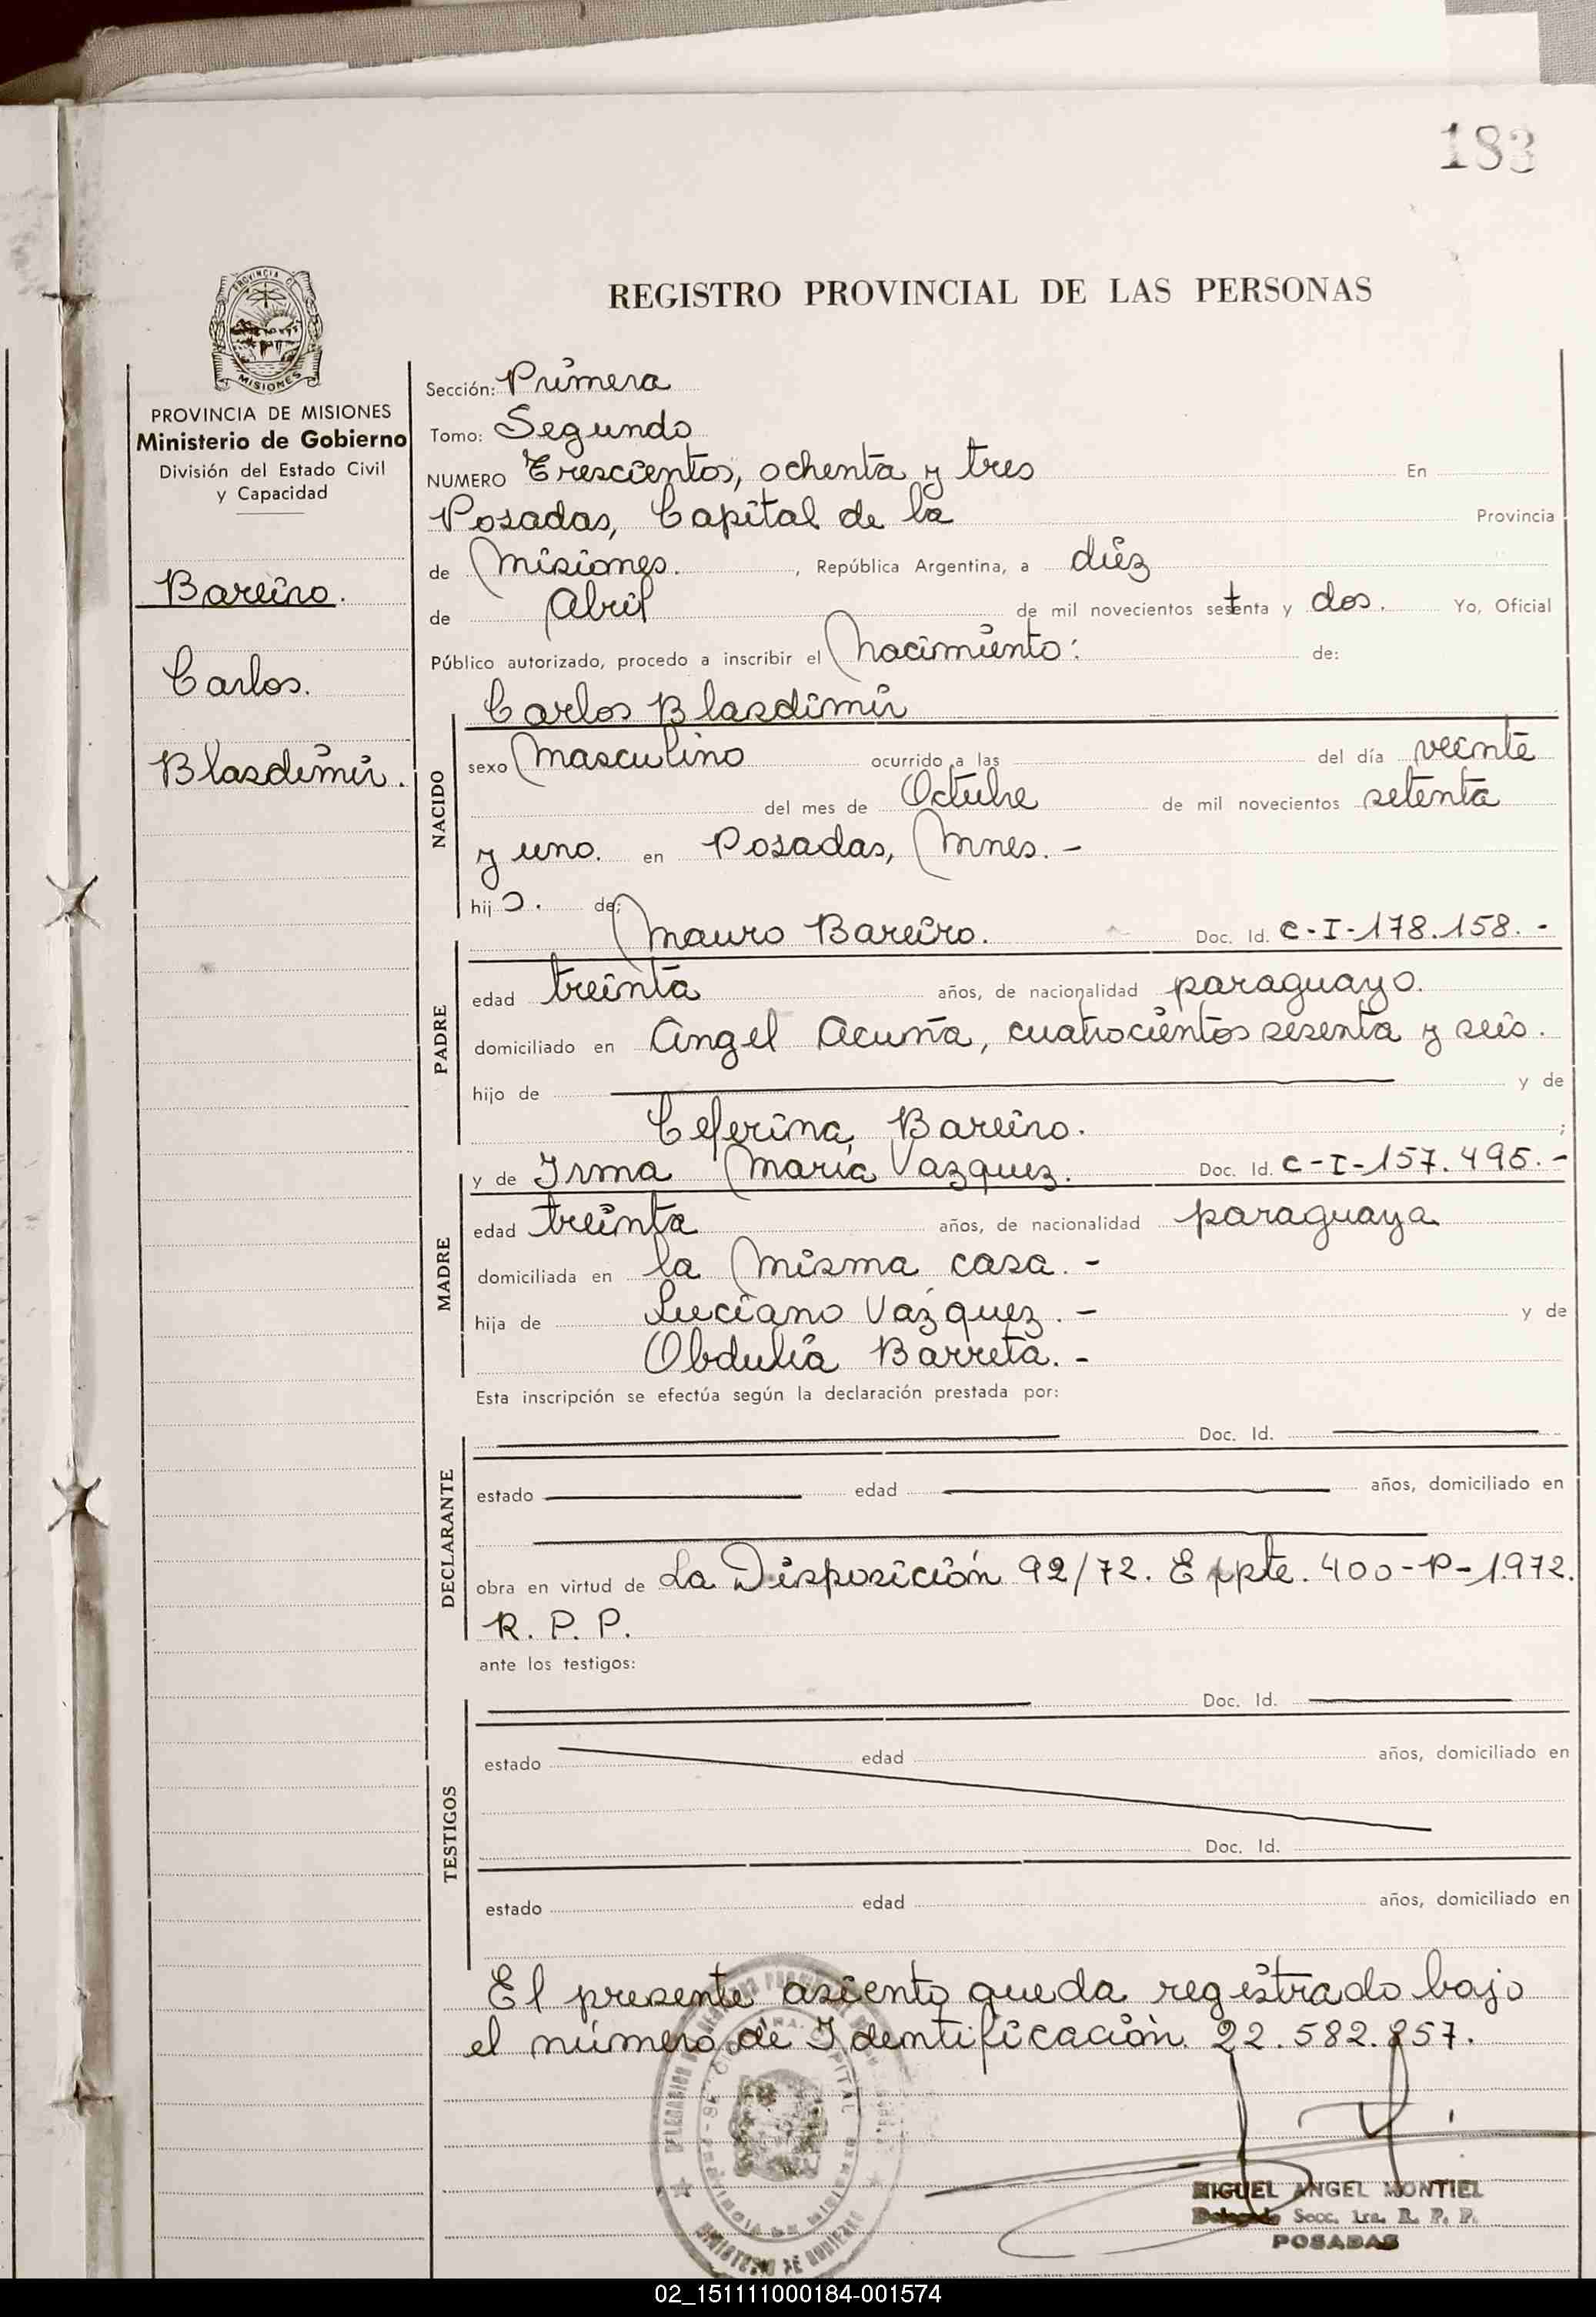 183
REGISTRO PROVINCIAL DE LAS PERSONAS
PROVINCIA DE MISIONES
MISIONES
PROVINCIA DE MISIONES
Ministerio de Gobierno
División del Estado Civil
y Capacidad
Bareiro.
Carlos.
Blasdimir.
Sección: Primera
Tomo: Segundo
NUMERO Trescientos, ochenta y tres En
Posadas, Capital de la Provincia
de Misiones. , República Argentina, a diez
de Abril de mil novecientos setenta y dos. Yo, Oficial
Público autorizado, procedo a inscribir el Nacimiento: de:
Carlos Blasdimir
NACIDO
sexo Masculino ocurrido a las del día veinte
del mes de Octubre de mil novecientos setenta
y uno. en Posadas, Mnes. -
hijo. de;
Mauro Bareiro. Doc. Id. C-I-178.158. -
PADRE
edad treinta años, de nacionalidad paraguayo.
domiciliado en Angel Acuña, cuatrocientos sesenta y seis.
hijo de y de
Ceferina Bareiro. ;
y de Irma María Vazquez. Doc. Id. C-I-157.495. -
MADRE
edad treinta años, de nacionalidad paraguaya
domiciliada en la misma casa. -
hija de Luciano Vázquez. - y de
Obdulia Barreta. -
Esta inscripción se efectúa según la declaración prestada por:
Doc. Id.
DECLARANTE
estado edad años, domiciliado en
obra en virtud de La Disposición 92/72. Expte. 400-P-1.972.
R. P. P.
ante los testigos:
Doc. Id.
TESTIGOS
estado edad años, domiciliado en
Doc. Id.
estado edad años, domiciliado en
El presente asiento queda registrado bajo
el número de Identificación 22.582.857.
MIGUEL ANGEL MONTIEL
Delegado Secc. 1ra. R. P. P.
POSADAS
02_151111000184-001574